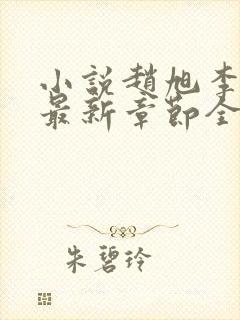 小説趙旭李
最新章節全
朱碧玲